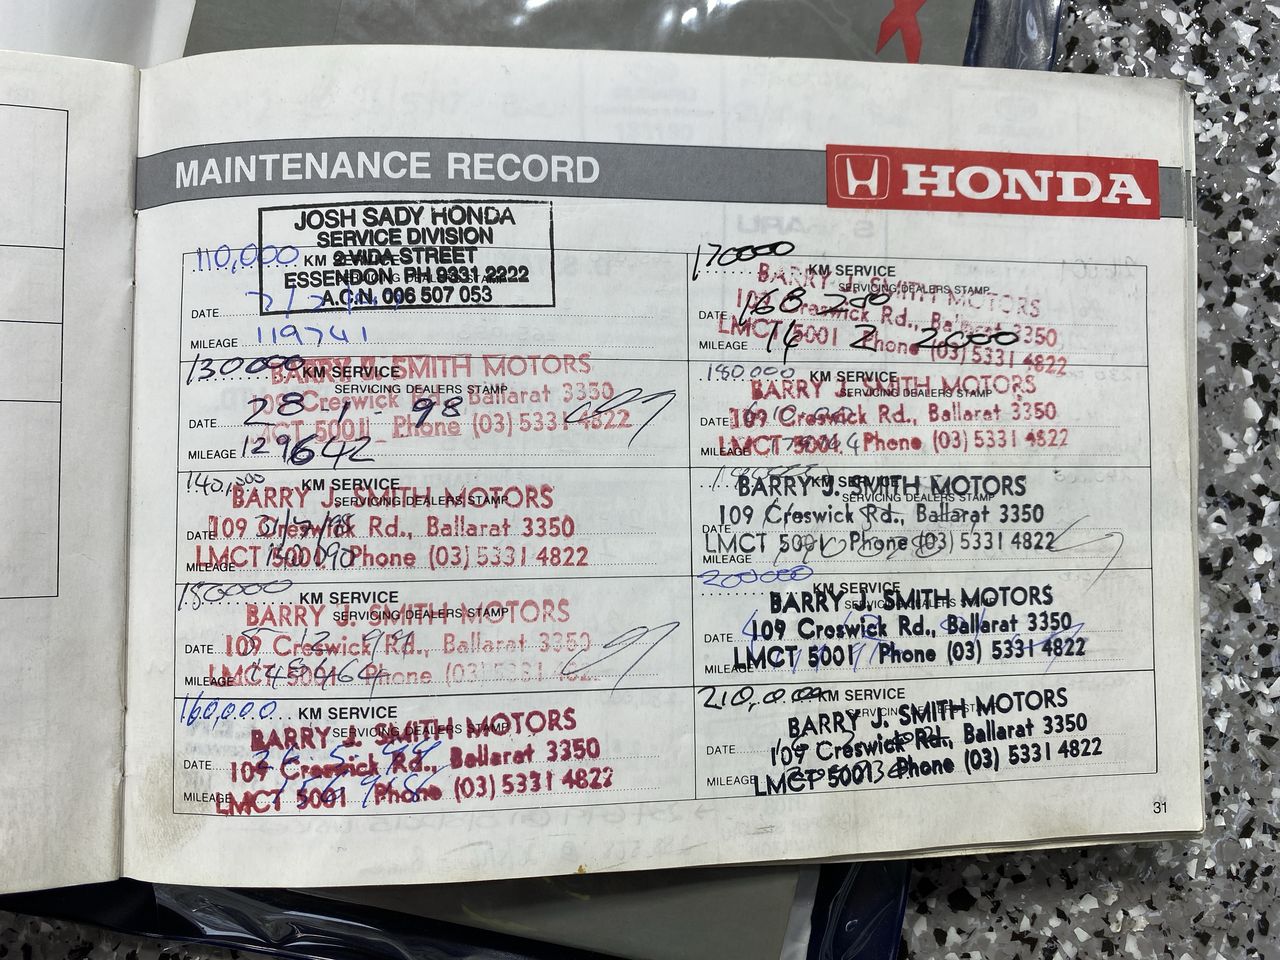 MAINTENANCE RECORD
HONDA
JOSH SADY HONDA
SERVICE DIVISION
2 VIDA STREET
ESSENDON PH 9331 2222
A.C.N. 006 507 053
110,000 KM SERVICE
DATE
MILEAGE 119741
130000 KM SERVICE
SERVICING DEALERS STAMP
BARRY J. SMITH MOTORS
109 Creswick Rd., Ballarat 3350
LMCT 5001 Phone (03) 5331 4822
DATE 28-1-98
MILEAGE 129642
140,000 KM SERVICE
SERVICING DEALERS STAMP
BARRY J. SMITH MOTORS
109 Creswick Rd., Ballarat 3350
LMCT 5001 Phone (03) 5331 4822
DATE
MILEAGE
150000 KM SERVICE
SERVICING DEALERS STAMP
BARRY J. SMITH MOTORS
109 Creswick Rd., Ballarat 3350
LMCT 5001 Phone (03) 5331 4822
DATE
MILEAGE
160,000 KM SERVICE
SERVICING DEALERS STAMP
BARRY J. SMITH MOTORS
109 Creswick Rd., Ballarat 3350
LMCT 5001 Phone (03) 5331 4822
DATE
MILEAGE
170000 KM SERVICE
SERVICING DEALERS STAMP
BARRY J. SMITH MOTORS
109 Creswick Rd., Ballarat 3350
LMCT 5001 Phone (03) 5331 4822
DATE
MILEAGE 14 2 2000
180000 KM SERVICE
SERVICING DEALERS STAMP
BARRY J. SMITH MOTORS
109 Creswick Rd., Ballarat 3350
LMCT 5001 Phone (03) 5331 4822
DATE
MILEAGE
KM SERVICE
SERVICING DEALERS STAMP
BARRY J. SMITH MOTORS
109 Creswick Rd., Ballarat 3350
LMCT 5001 Phone (03) 5331 4822
DATE
MILEAGE
200000 KM SERVICE
SERVICING DEALERS STAMP
BARRY J. SMITH MOTORS
109 Creswick Rd., Ballarat 3350
LMCT 5001 Phone (03) 5331 4822
DATE
MILEAGE
210,000 KM SERVICE
SERVICING DEALERS STAMP
BARRY J. SMITH MOTORS
109 Creswick Rd., Ballarat 3350
LMCT 5001 Phone (03) 5331 4822
DATE
MILEAGE
31